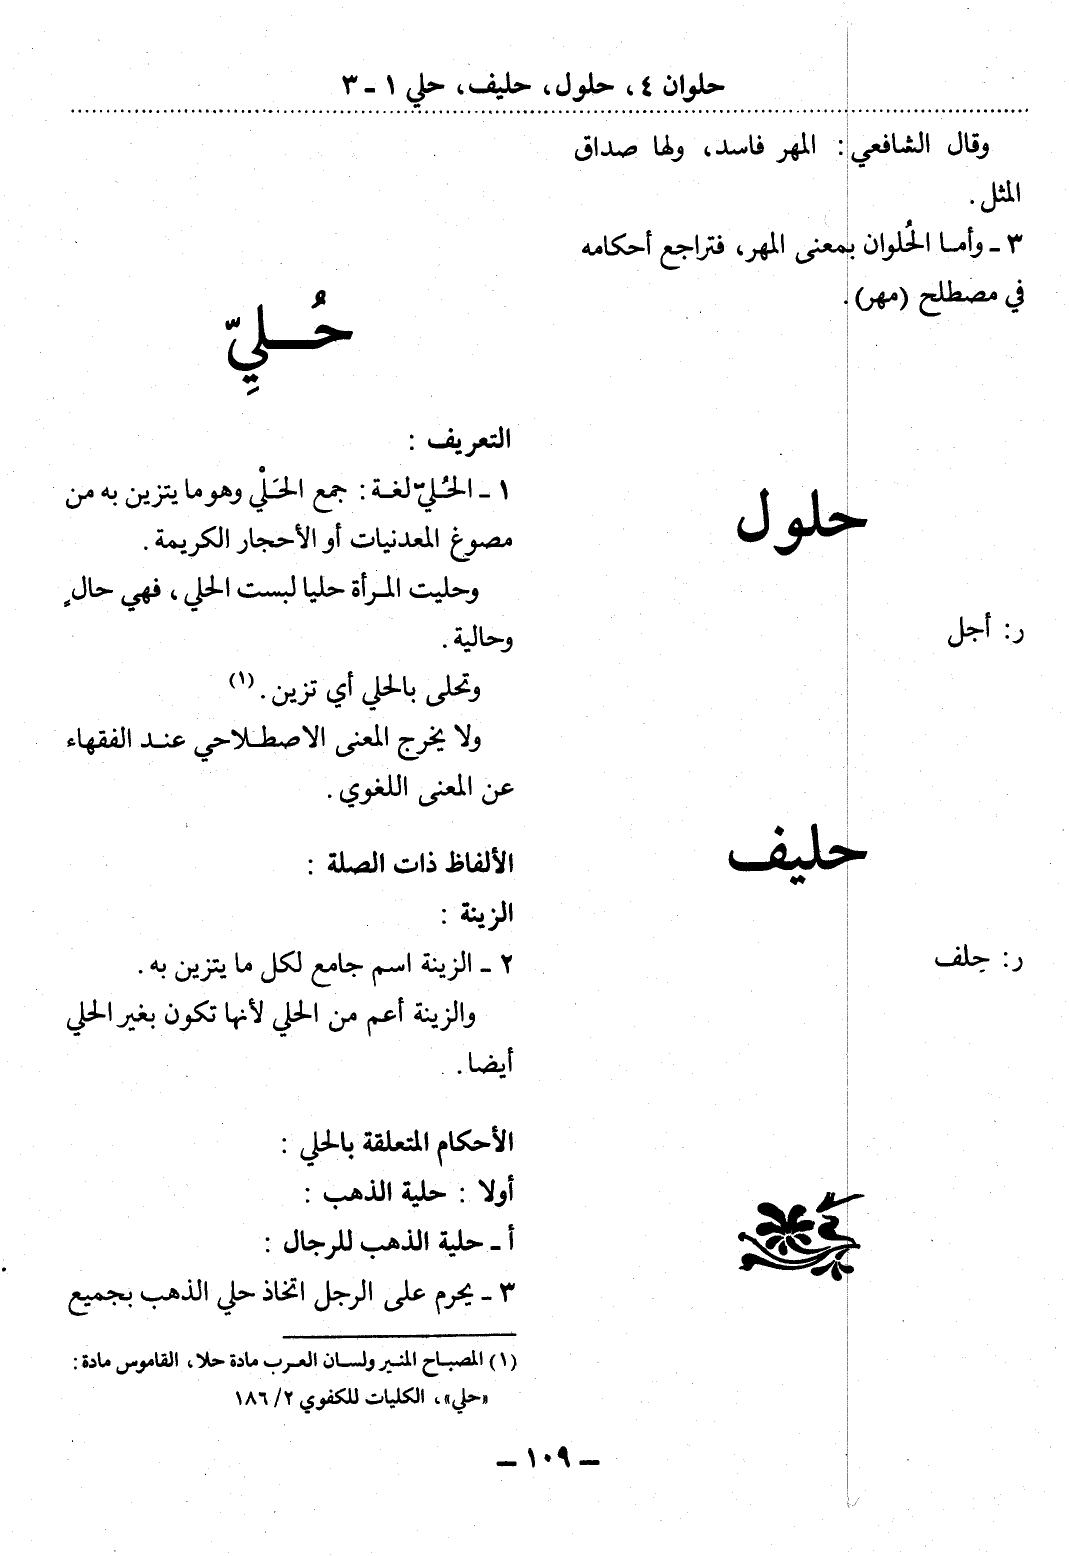 حلوان ٤، حلول، حليف، حلي ١ ـ ٣
وقال الشافعي: المهر فاسد، ولها صداق
المثل.
٣ ـ وأما الحُلوان بمعنى المهر، فتراجع أحكامه
في مصطلح (مهر).
حلول
ر: أجل
حليف
ر: حِلف
حُـليِّ
التعريف :
١ ـ الحُليّ لغة: جمع الحَلْي وهو ما يتزين به من
مصوغ المعدنيات أو الأحجار الكريمة.
وحليت المرأة حليا لبست الحلي، فهي حالٍ
وحالية.
وتحلى بالحلي أي تزين.(١)
ولا يخرج المعنى الاصطلاحي عند الفقهاء
عن المعنى اللغوي.
الألفاظ ذات الصلة :
الزينة :
٢ ـ الزينة اسم جامع لكل ما يتزين به.
والزينة أعم من الحلي لأنها تكون بغير الحلي
أيضا.
الأحكام المتعلقة بالحلي :
أولا : حلية الذهب :
أ ـ حلية الذهب للرجال :
٣ ـ يحرم على الرجل اتخاذ حلي الذهب بجميع
(١) المصباح المنير ولسان العرب مادة حلا، القاموس مادة:
«حلي»، الكليات للكفوي ٢/ ١٨٦
ـ ١٠٩ ـ